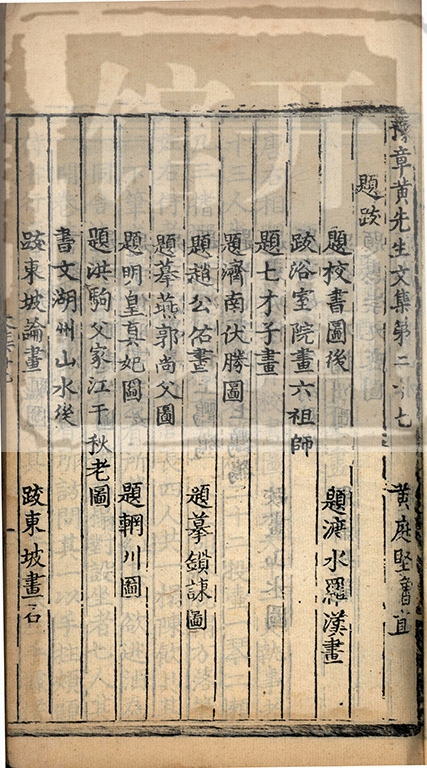 豫章黃先生文集第二十七 黃庭堅魯直
題跋
題校書圖後 題渡水羅漢畫
跋浴室院畫六祖師
題七才子畫
題濟南伏勝圖
題趙公佑畫 題摹鎖諫圖
題摹燕郭尚父圖
題明皇真妃圖 題輞川圖
題洪駒父家江干秋老圖
書文湖州山水後
跋東坡論畫 跋東坡畫石